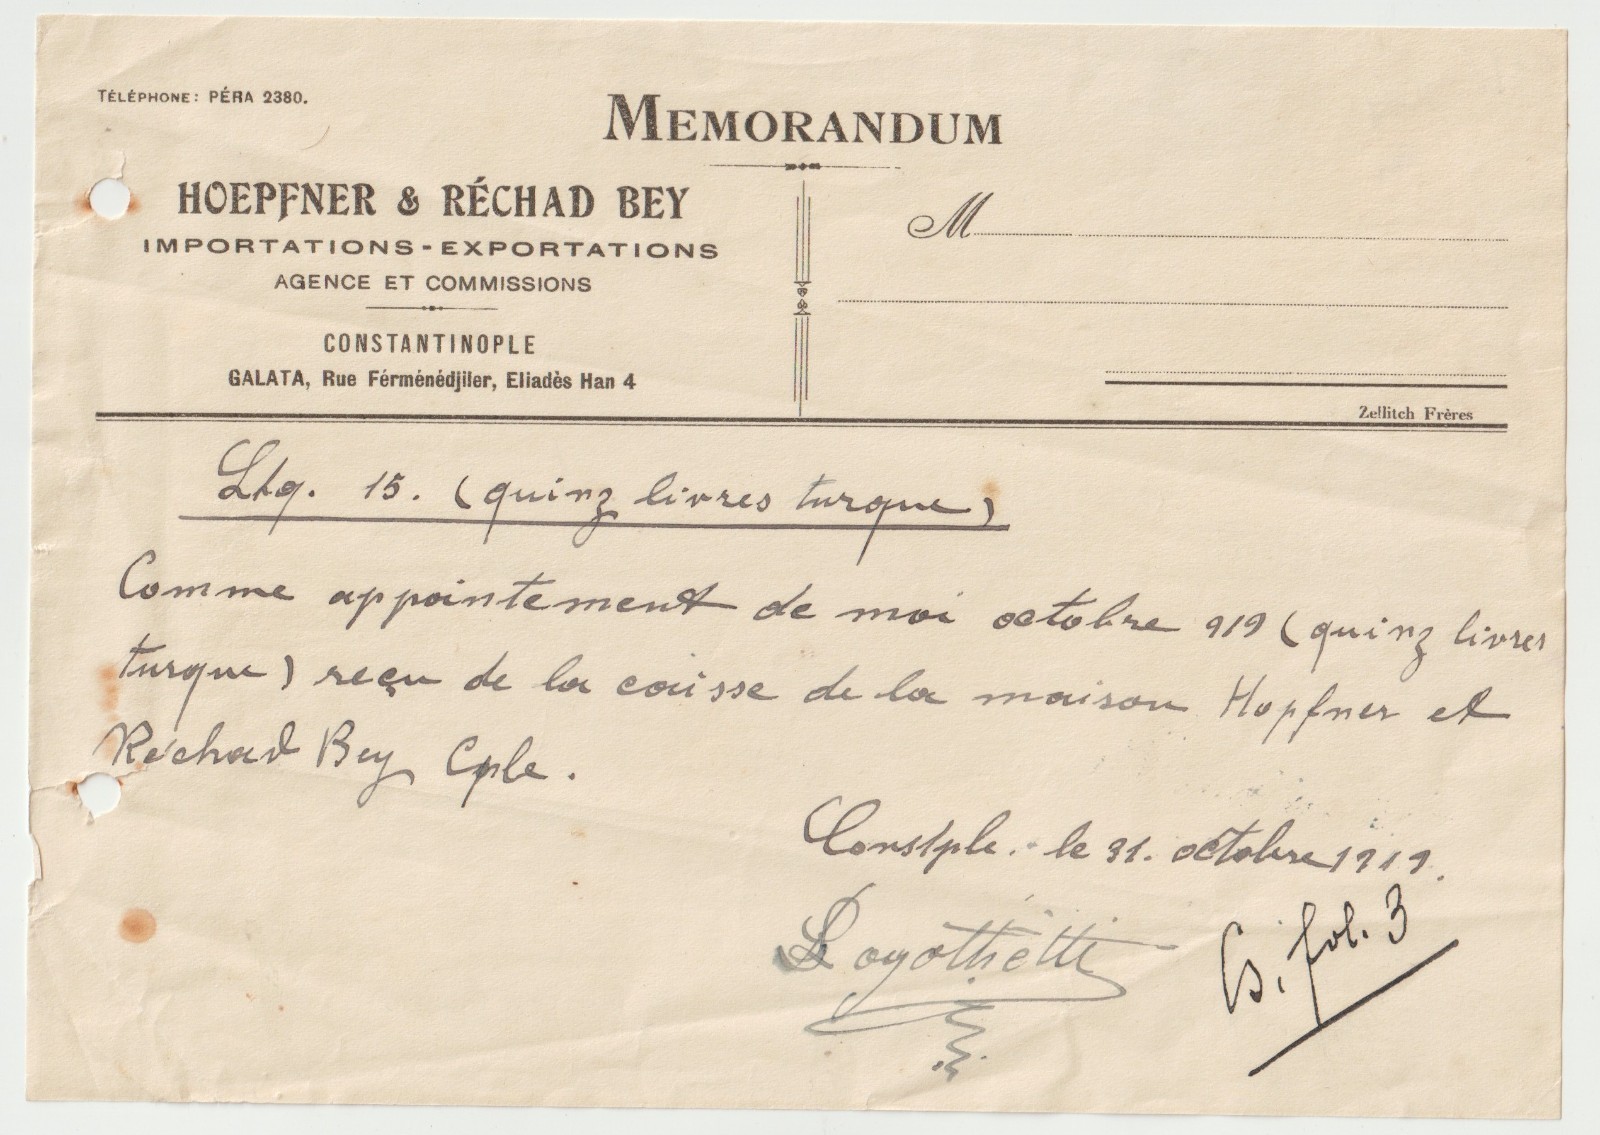 TÉLÉPHONE: PÉRA 2380.
MEMORANDUM
HOEPFNER & RÉCHAD BEY
IMPORTATIONS-EXPORTATIONS
AGENCE ET COMMISSIONS
CONSTANTINOPLE
GALATA, Rue Férménédjiler, Eliadès Han 4
M
Zellitch Frères
Ltq. 15. (quinz livres turque)
Comme appointement de moi octobre 919 (quinz livres
turque) reçu de la caisse de la maison Hopfner et
Réchad Bey Cple.
Constple. le 31. octobre 1919.
Logothétti
fol. 3